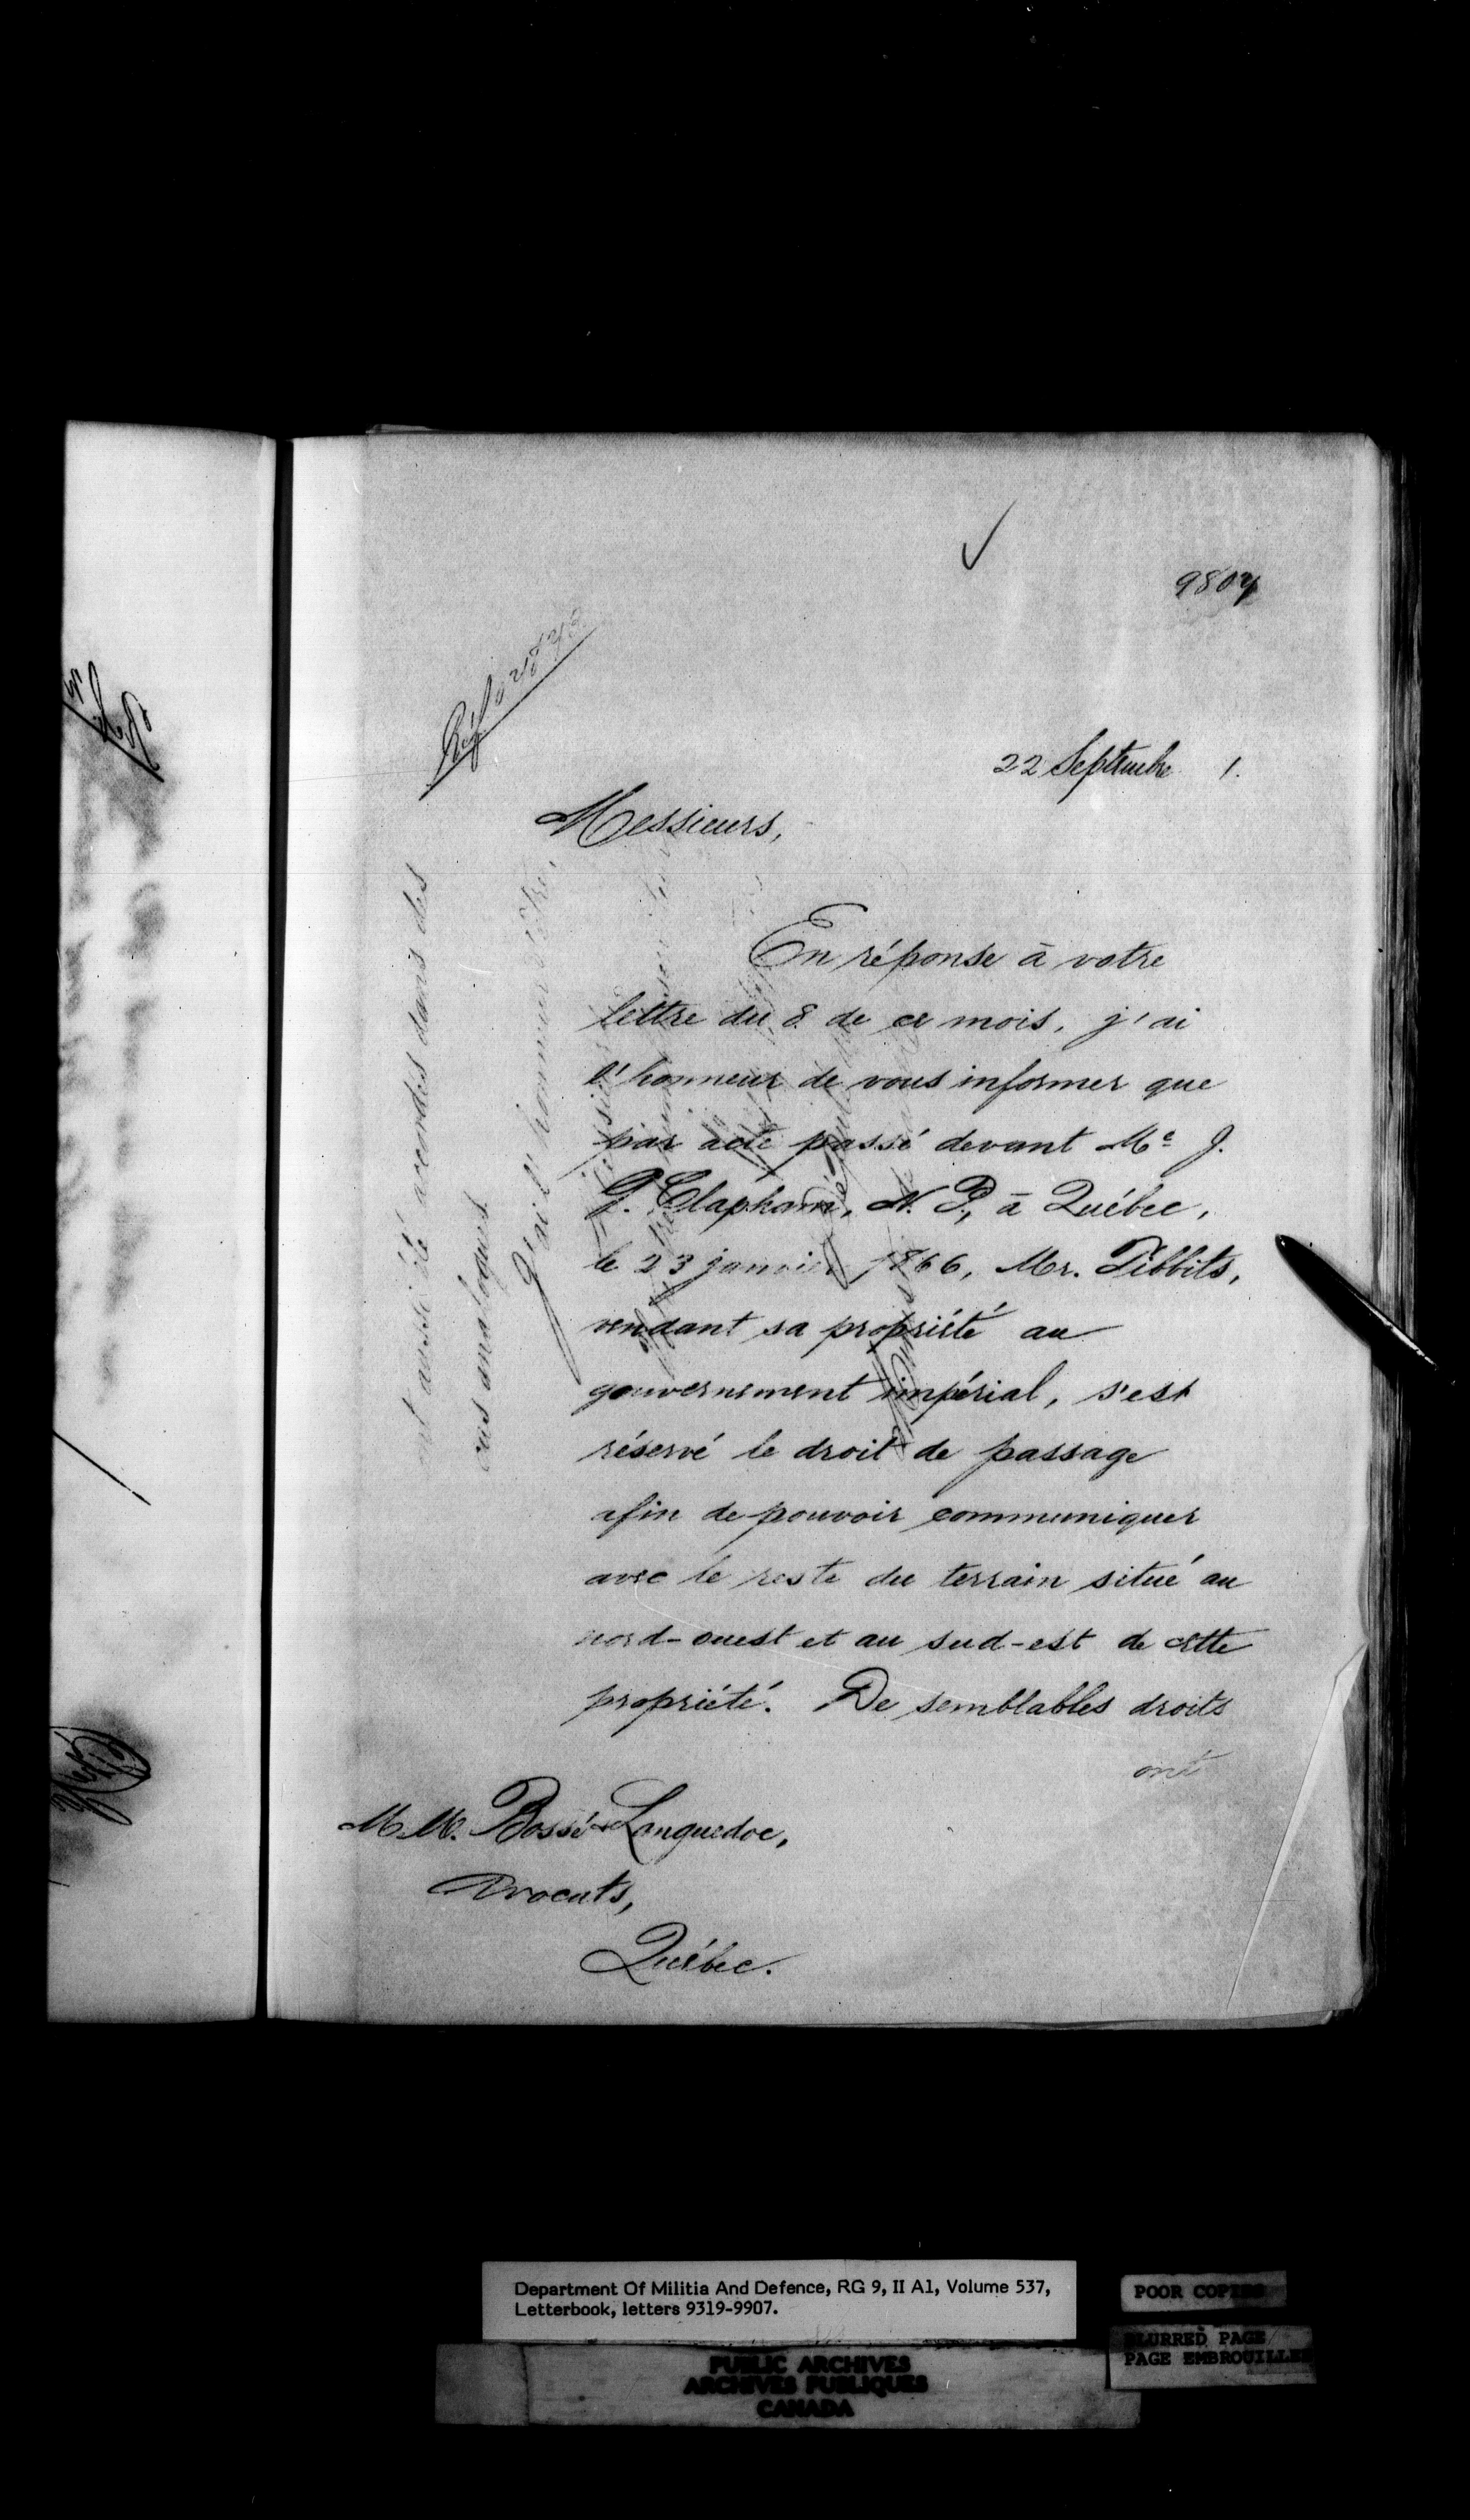 9807
22 Septembre 1.
Messieurs,
En réponse à votre
lettre du 8 de ce mois, j'ai
l'honneur de vous informer que
par acte passé devant Me J.
G. Clapham, N. P., à Québec,
le 23 janvier 1866, Mr. Tibbits,
vendant sa propriété au
gouvernement impérial, s'est
réservé le droit de passage
afin de pouvoir communiquer
avec le reste du terrain situé au
nord-ouest et au sud-est de cette
propriété. De semblables droits
ont
M.M. Bossé & Languedoc,
Avocats,
Québec.
ont aussi été accordés dans des
cas analogues.
J'ai l'honneur d'être,
Messieurs,
Department Of Militia And Defence, RG 9, II A1, Volume 537,
Letterbook, letters 9319-9907.
POOR COPIES
BLURRED PAGE
PAGE EMBROUILLEE
PUBLIC ARCHIVES
ARCHIVES PUBLIQUES
CANADA